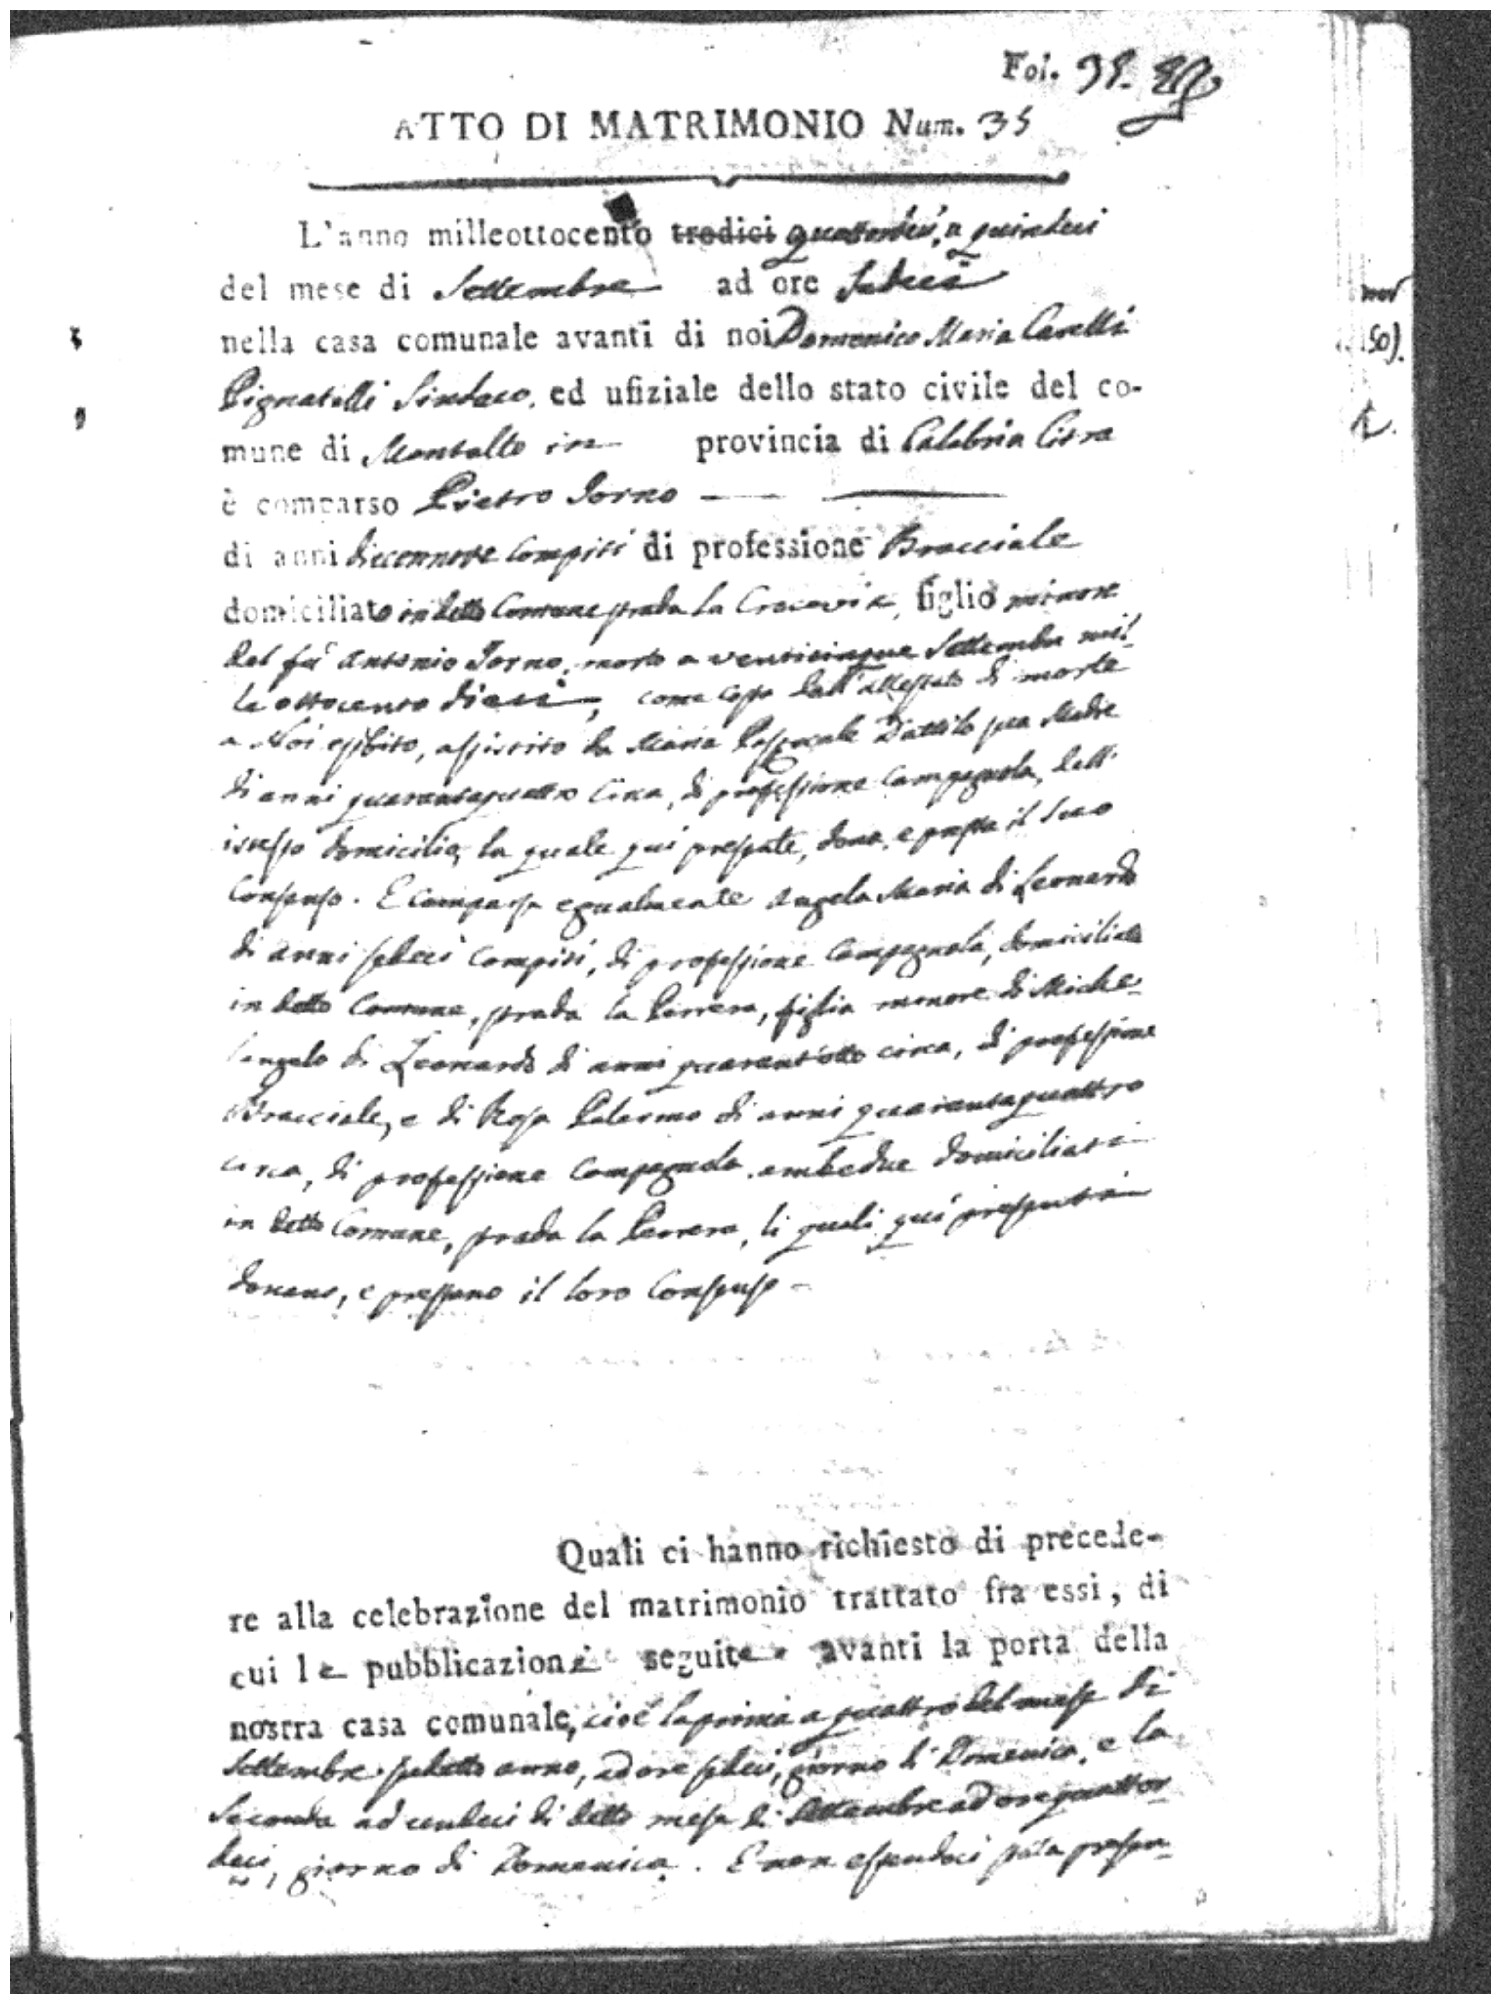 Fol. 35.
ATTO DI MATRIMONIO Num. 35
L'anno milleottocento tredici quattordici, a quindeci
del mese di Settembre ad ore sedeci
nella casa comunale avanti di noi Domenico Maria Cavelli
Pignatelli Sindaco, ed ufiziale dello stato civile del co-
mune di Montalto in provincia di Calabria Citra
è comparso Pietro Iorno
di anni diecennove compiti di professione Bracciale
domiciliato in detto Comune strada la Cracovia, figlio minore
del fu Antonio Iorno, morto a venticinque Settembre mil-
le ottocento dieci, come costa dall'attestato di morte
a Noi esibito, assistito da Maria Pasquale Dattilo sua Madre
di anni quarantaquattro circa, di professione Campagnola, dell'
istesso domicilio, la quale qui presente, dona, e presta il suo
Consenso. E comparsa egualmente Angela Maria di Leonardo
di anni sedeci compiti, di professione Campagnola, domiciliata
in detto Comune, strada la Perrera, figlia minore di Miche-
langelo di Leonardo di anni quarant'otto circa, di professione
Bracciale, e di Rosa Palermo di anni quarantaquattro
circa, di professione Campagnola, ambedue domiciliati
in detto Comune, strada la Perrera, li quali qui presenti
donano, e prestano il loro Consenso -
Quali ci hanno richiesto di precede-
re alla celebrazione del matrimonio trattato fra essi, di
cui le pubblicazioni seguite avanti la porta della
nostra casa comunale, cioè la prima a quattro del mese di
Settembre sudetto anno, ad ore sedeci, giorno di Domenica, e la
Seconda ad undeci di detto mese di Settembre ad ore quattor-
deci, giorno di Domenica. E non essendoci stata presen-